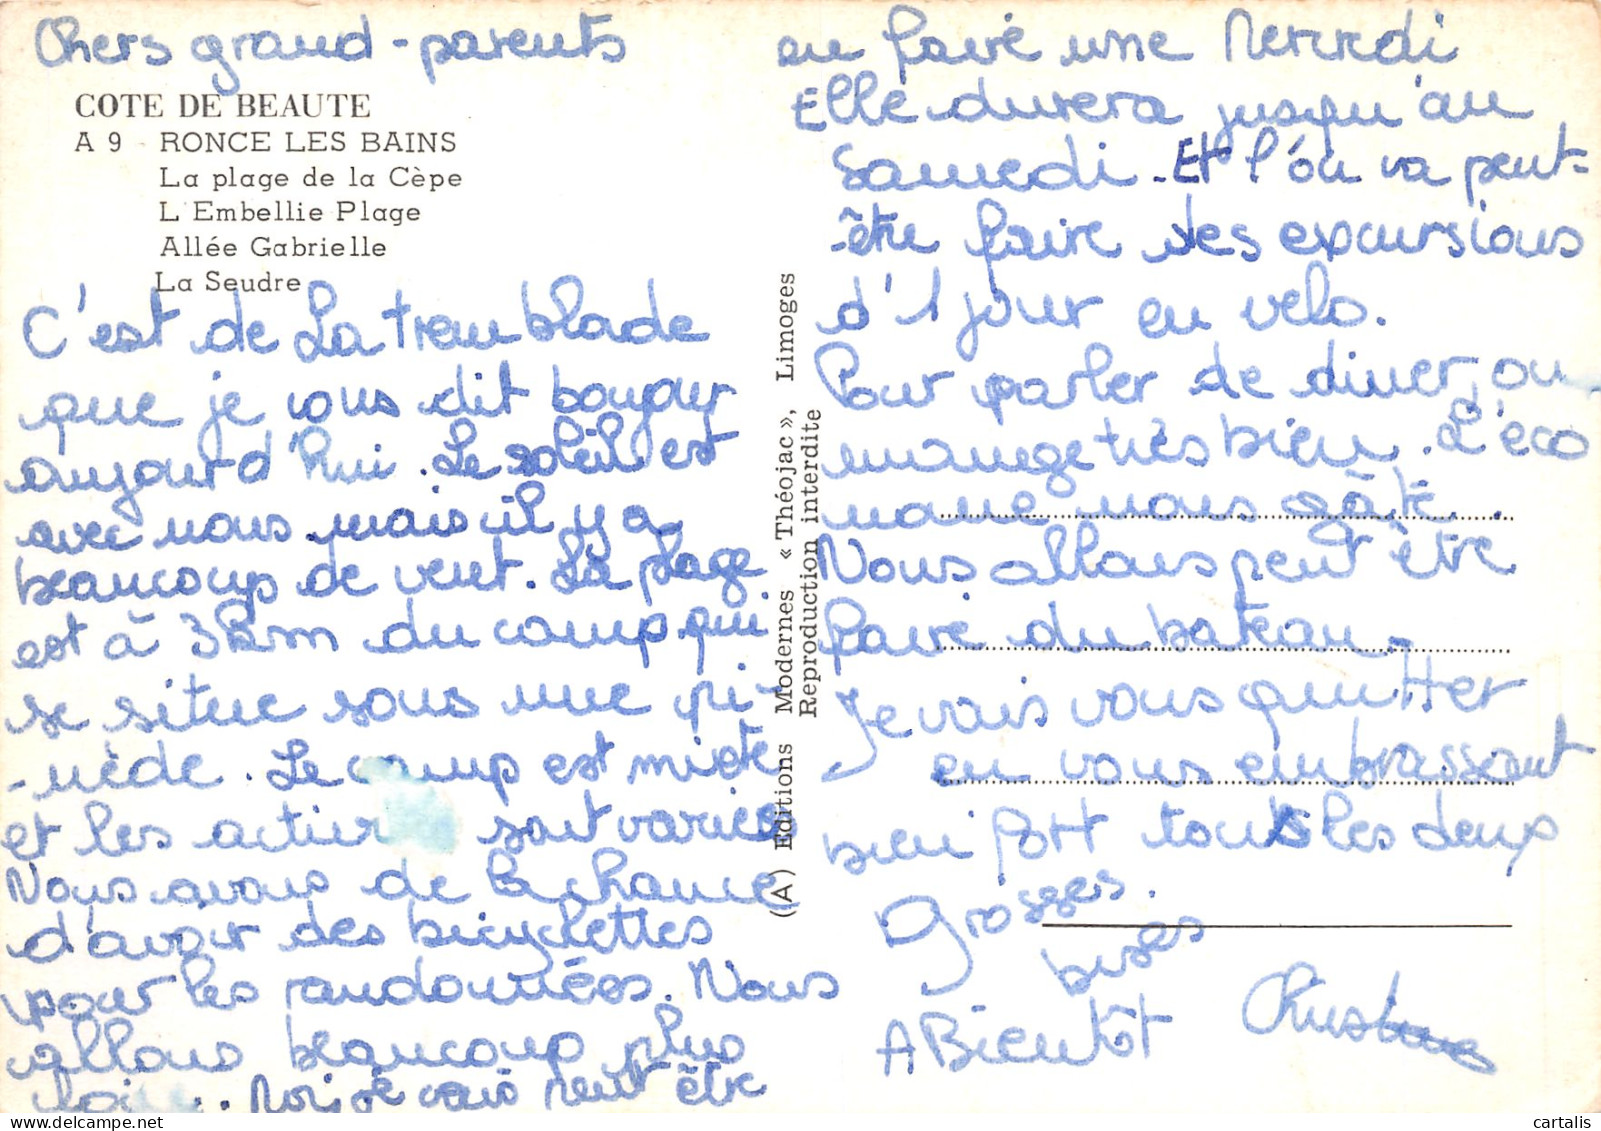 Chers grand-parents
COTE DE BEAUTE
A 9 - RONCE LES BAINS
La plage de la Cèpe
L'Embellie Plage
Allée Gabrielle
La Seudre
C'est de La tremblade
que je vous dit boujour
aujourd'hui. Le soleil est
avec nous mais il y a
beaucoup de vent. La plage
est à 3km du camp qui
se situe sous une pi-
-nède. Le camp est mixte
et les sont variées
Nous avons de la chance
d'avoir des bicyclettes
pour les randonnées. Nous
allons beaucoup plus
loin. Moi je vais peut être
(A) Editions Modernes « Théojac », Limoges
Reproduction interdite
en faire une Mercredi
Elle durera jusqu'au
Samedi. Et l'on va peut-
-être faire des excursions
d'1 jour en velo.
Pour parler de diner, on
mange très bien. L'éco
nome nous gâte.
Nous allons peut être
faire du bateau.
Je vais vous quitter
en vous embrassant
bien fort tous les deux
Grosses
bises
A Bientôt